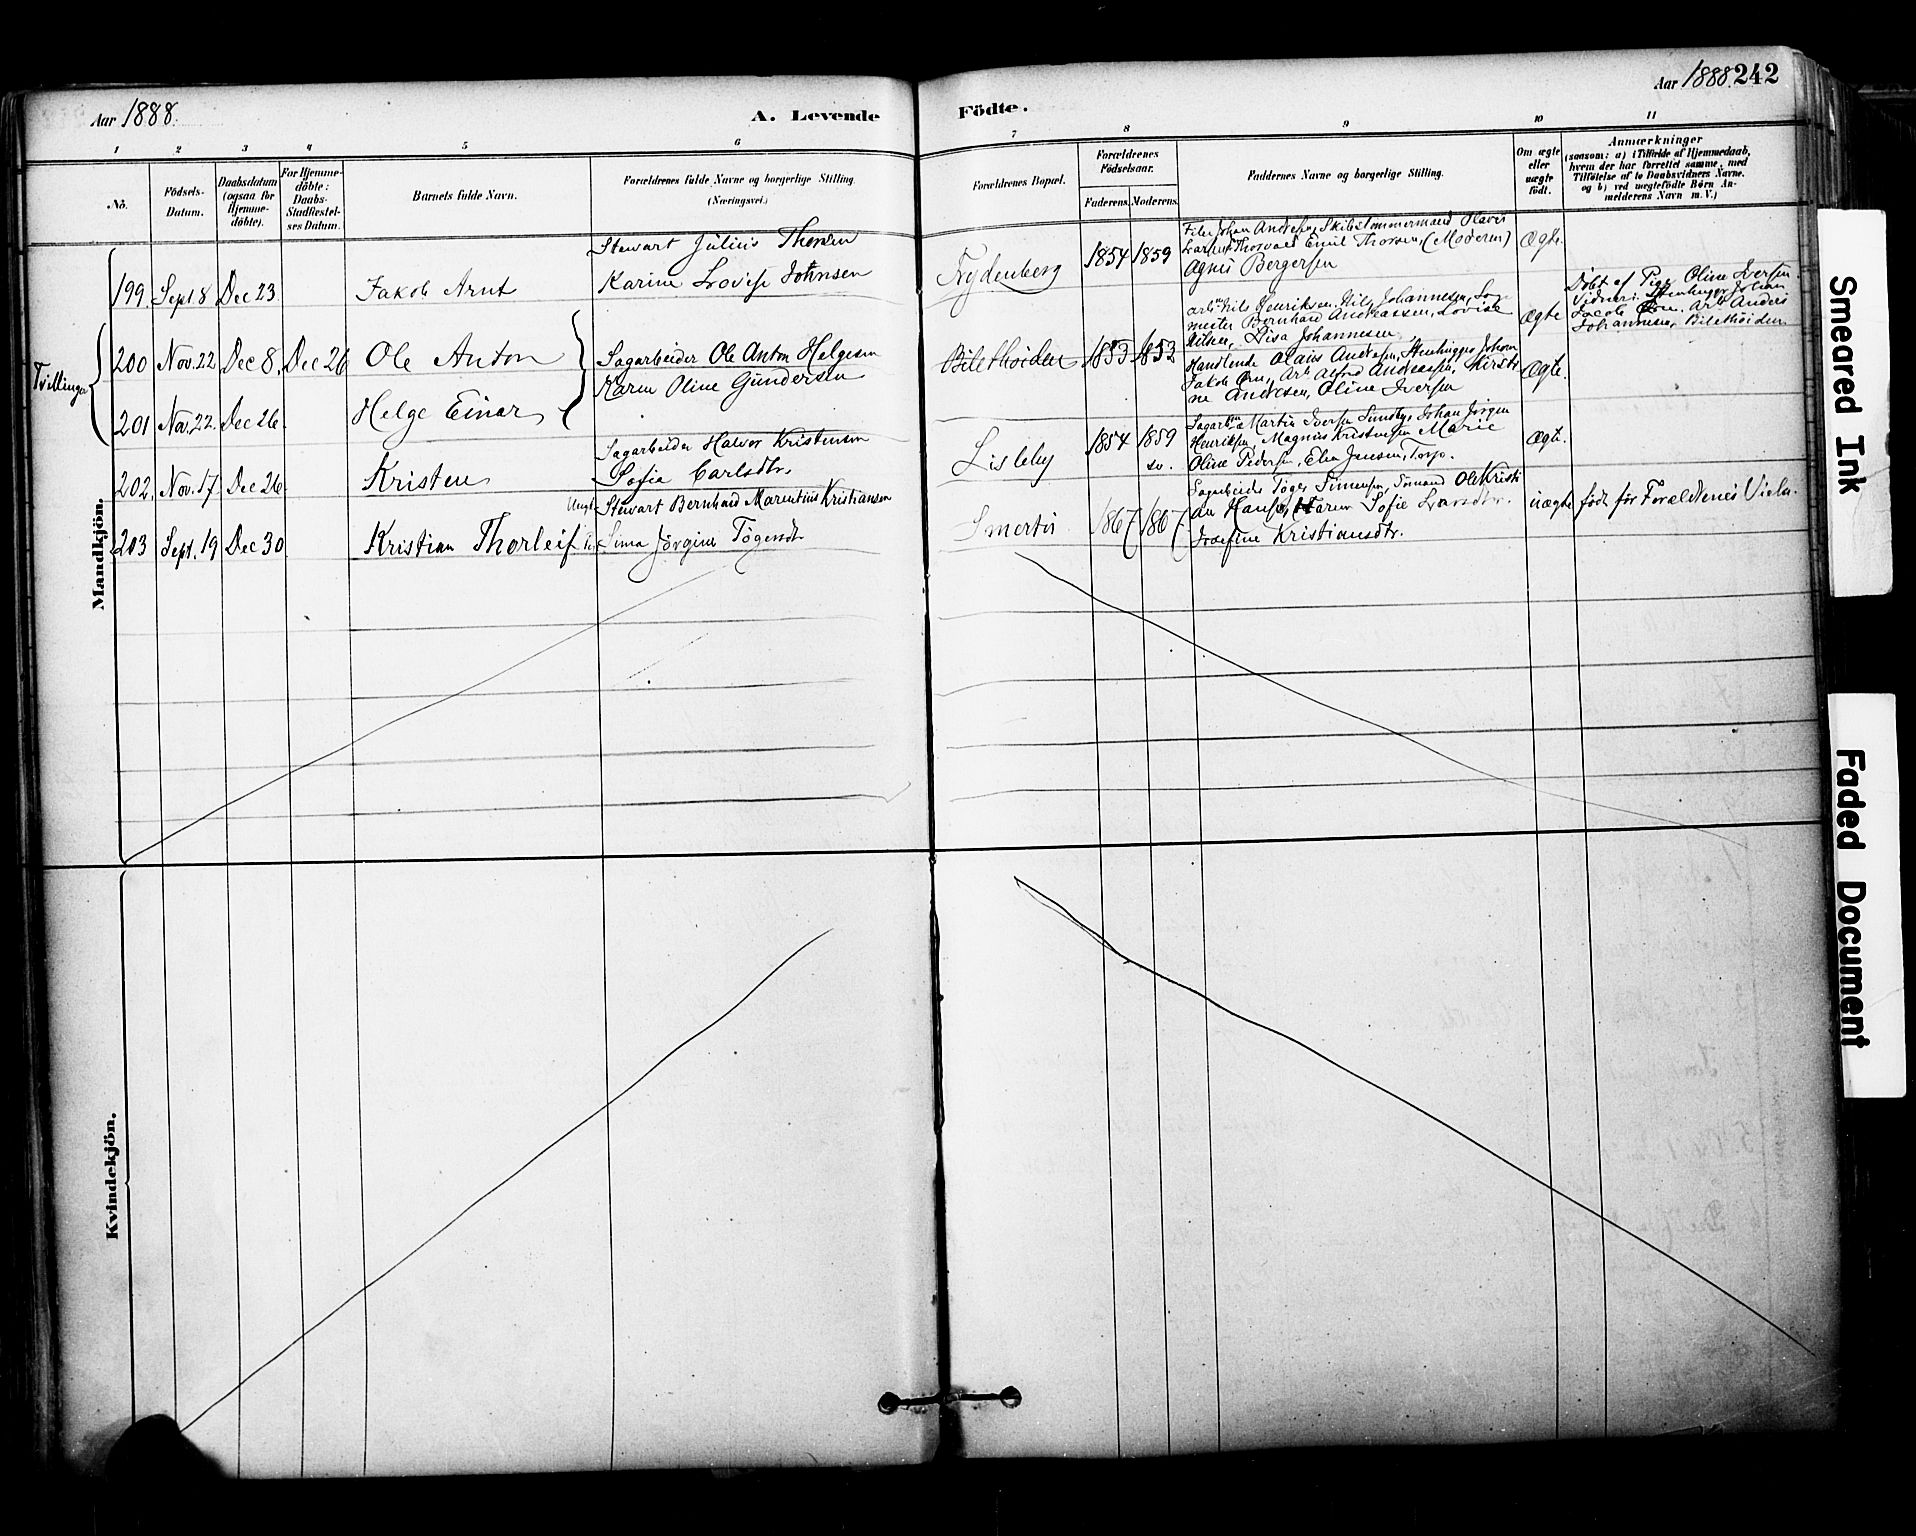 Aar 1888.
A. Levende
Födte.
Aar 1888. 242
1 2 3 4 5 6 7 8 9 10 11
No.
Födsels-
Datum.
Daabsdatum
(ogsaa for
Hjemme-
döbte).
For Hjemme-
döbte:
Daabs-
Stadfæstel-
ses Datum.
Barnets fulde Navn.
Forældrenes fulde Navne og borgerlige Stilling.
(Næringsvei.)
Forældrenes Bopæl.
Forældrenes
Födselsaar.
Faderens. Moderens.
Faddernes Navne og borgerlige Stilling.
Om ægte
eller
uægte
födt.
Anmærkninger
(saasom: a) i Tilfælde af Hjemmedaab,
hvem der har forrettet samme, med
Tilföielse af to Daabsvidners Navne,
og b) ved uægtefödte Börn An-
melderens Navn m. V.)
Mandkjön.
199. Sept 8 Dec 23 Jakob Arnt
Stewart Julius Thorsen
Karine Lovise Johnsen
1854 1859
Johan Andresen, Skibstømmermand Olavs
Thorvald Emil Thorsen, (Moderen)
Agnes Bergersen
Ægte.
Tvillinger
200 Nov. 22 Dec 8. Dec 26 Ole Anton
Sagarbeider Ole Anton Helgesen
Karen Oline Gundersen
Bilethöiden 1853 1853
Nils Henriksen, Nils Johannesen,
Bernhard Andreassen, Lovise
Nilsen, Lisa Johannesen
Ægte
Döbt af Pige Oline Iversen
Vidner: Stenhugger Johan
Jacob Örn, Arb. Anders
Johannesen, Bilethöiden
201 Nov. 22. Dec 26. Helge Einar
Handlende Olaus Andresen, Stenhugger Johan
Jakob Örn, Arb. Alfred Andreasen, Kirsti-
ne Andresen, Oline Iversen
Ægte.
202. Nov. 17 Dec 26 Kristen
Sagarbeider Halvor Kristensen
Sofie Carlsdtr.
Lisleby 1854 1859
sv.
Sagarb. Martin Iversen Sundby, Johan Jørgen
Henriksen, Magnus Kristensen, Marie
Oline Pedersen, Elen Jensen, Torp.
Ægte.
203 Sept. 19 Dec 30 Kristian Thorleif
Ungk. Stewart Bernhard Marentius Kristiansen
Pi. Lina Jörgine Tögersdt.
Smertu 1867 1867
Sagarbeider Töger Simensen, Sömand Ole Kristi-
an Hansen, Karen Sofie Larsdtr.
Josefine Kristiansdtr.
uægte
født før Forældrenes Vielse.
Kvindekjön.
Smeared Ink
Faded Document